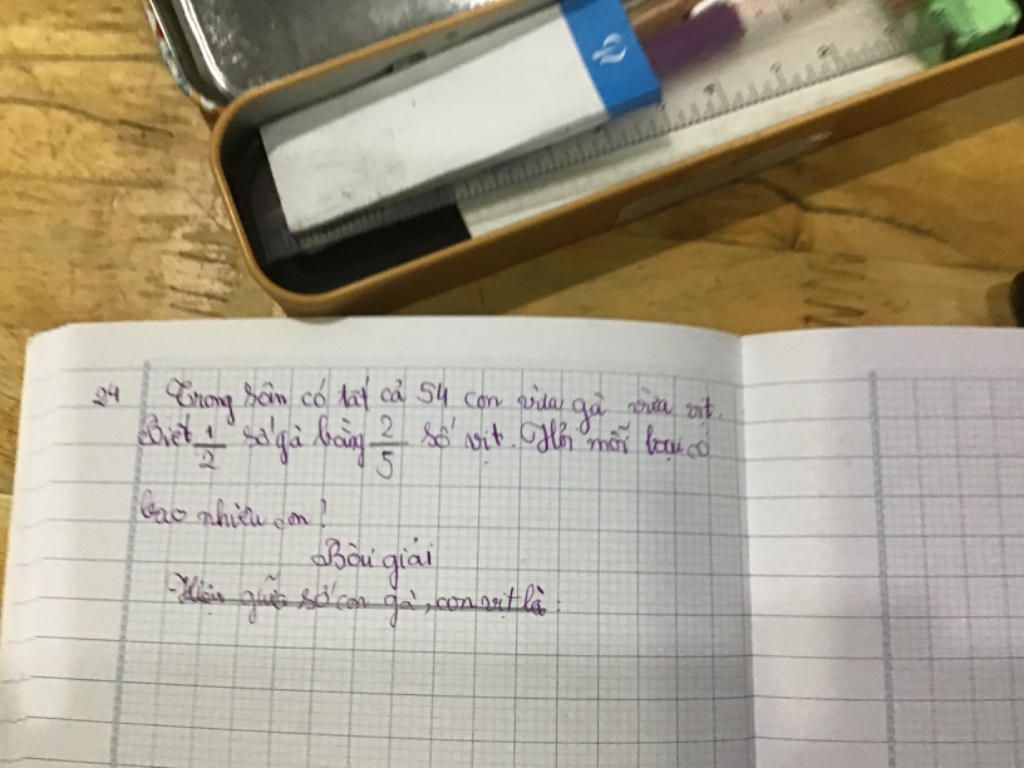 24 Trong sân có tất cả 54 con vừa gà vừa vịt.
Biết 1/2 số gà bằng 2/5 số vịt. Hỏi mỗi loại có
bao nhiêu con?
Bài giải
Hiệu giữa số con gà, con vịt là: